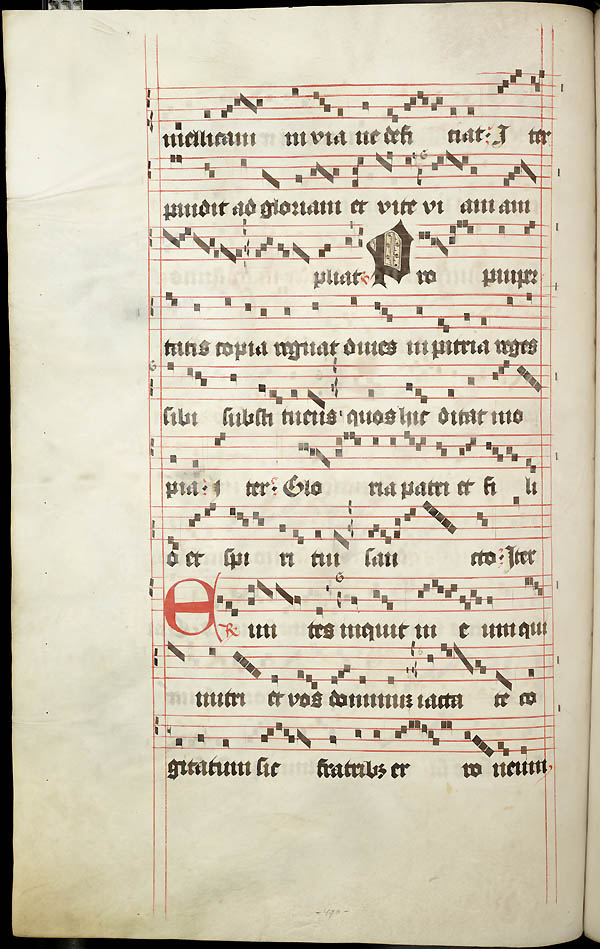 in via ne defi ciat : I ter
pandit ad gloriam et vite vi am am
pliat ro pauper
tatis copia regnat dives in patria reges
sibi substi tutis quos hic ditat ino
pia : I ter : Glo ria patri et fi li
o et spi ri tui san cto : Iter
E un tes inquit in e um qui
nutri et vos dominus iacta te co
gitatum sic fratribz er ro neum